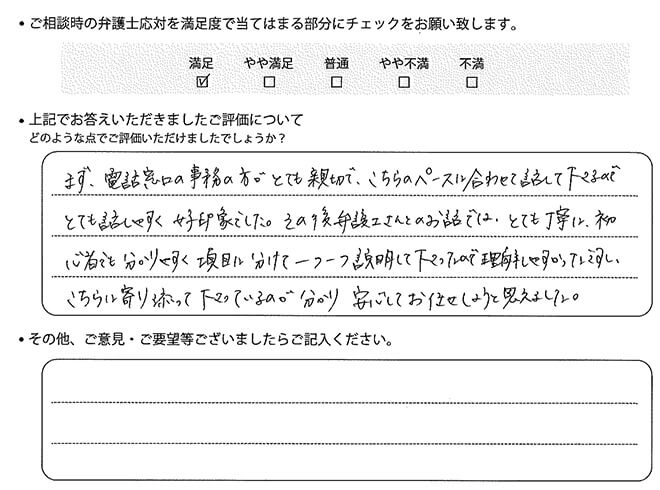 ・ご相談時の弁護士応対を満足度で当てはまる部分にチェックをお願い致します。
満足 やや満足 普通 やや不満 不満
☑ ☐ ☐ ☐ ☐
・上記でお答えいただきましたご評価について
どのような点でご評価いただけましたでしょうか？
まず、電話窓口の事務の方がとても親切で、こちらのペースに合わせて話して下さるので
とても話しやすく好印象でした。その後弁護士さんとのお話では、とても丁寧に、初
心者でも分かりやすく項目に分けて一つ一つ説明して下さったので理解しやすかったですし、
こちらに寄り添って下さっているのが分かり安心してお任せしようと思えました。
・その他、ご意見・ご要望等ございましたらご記入ください。